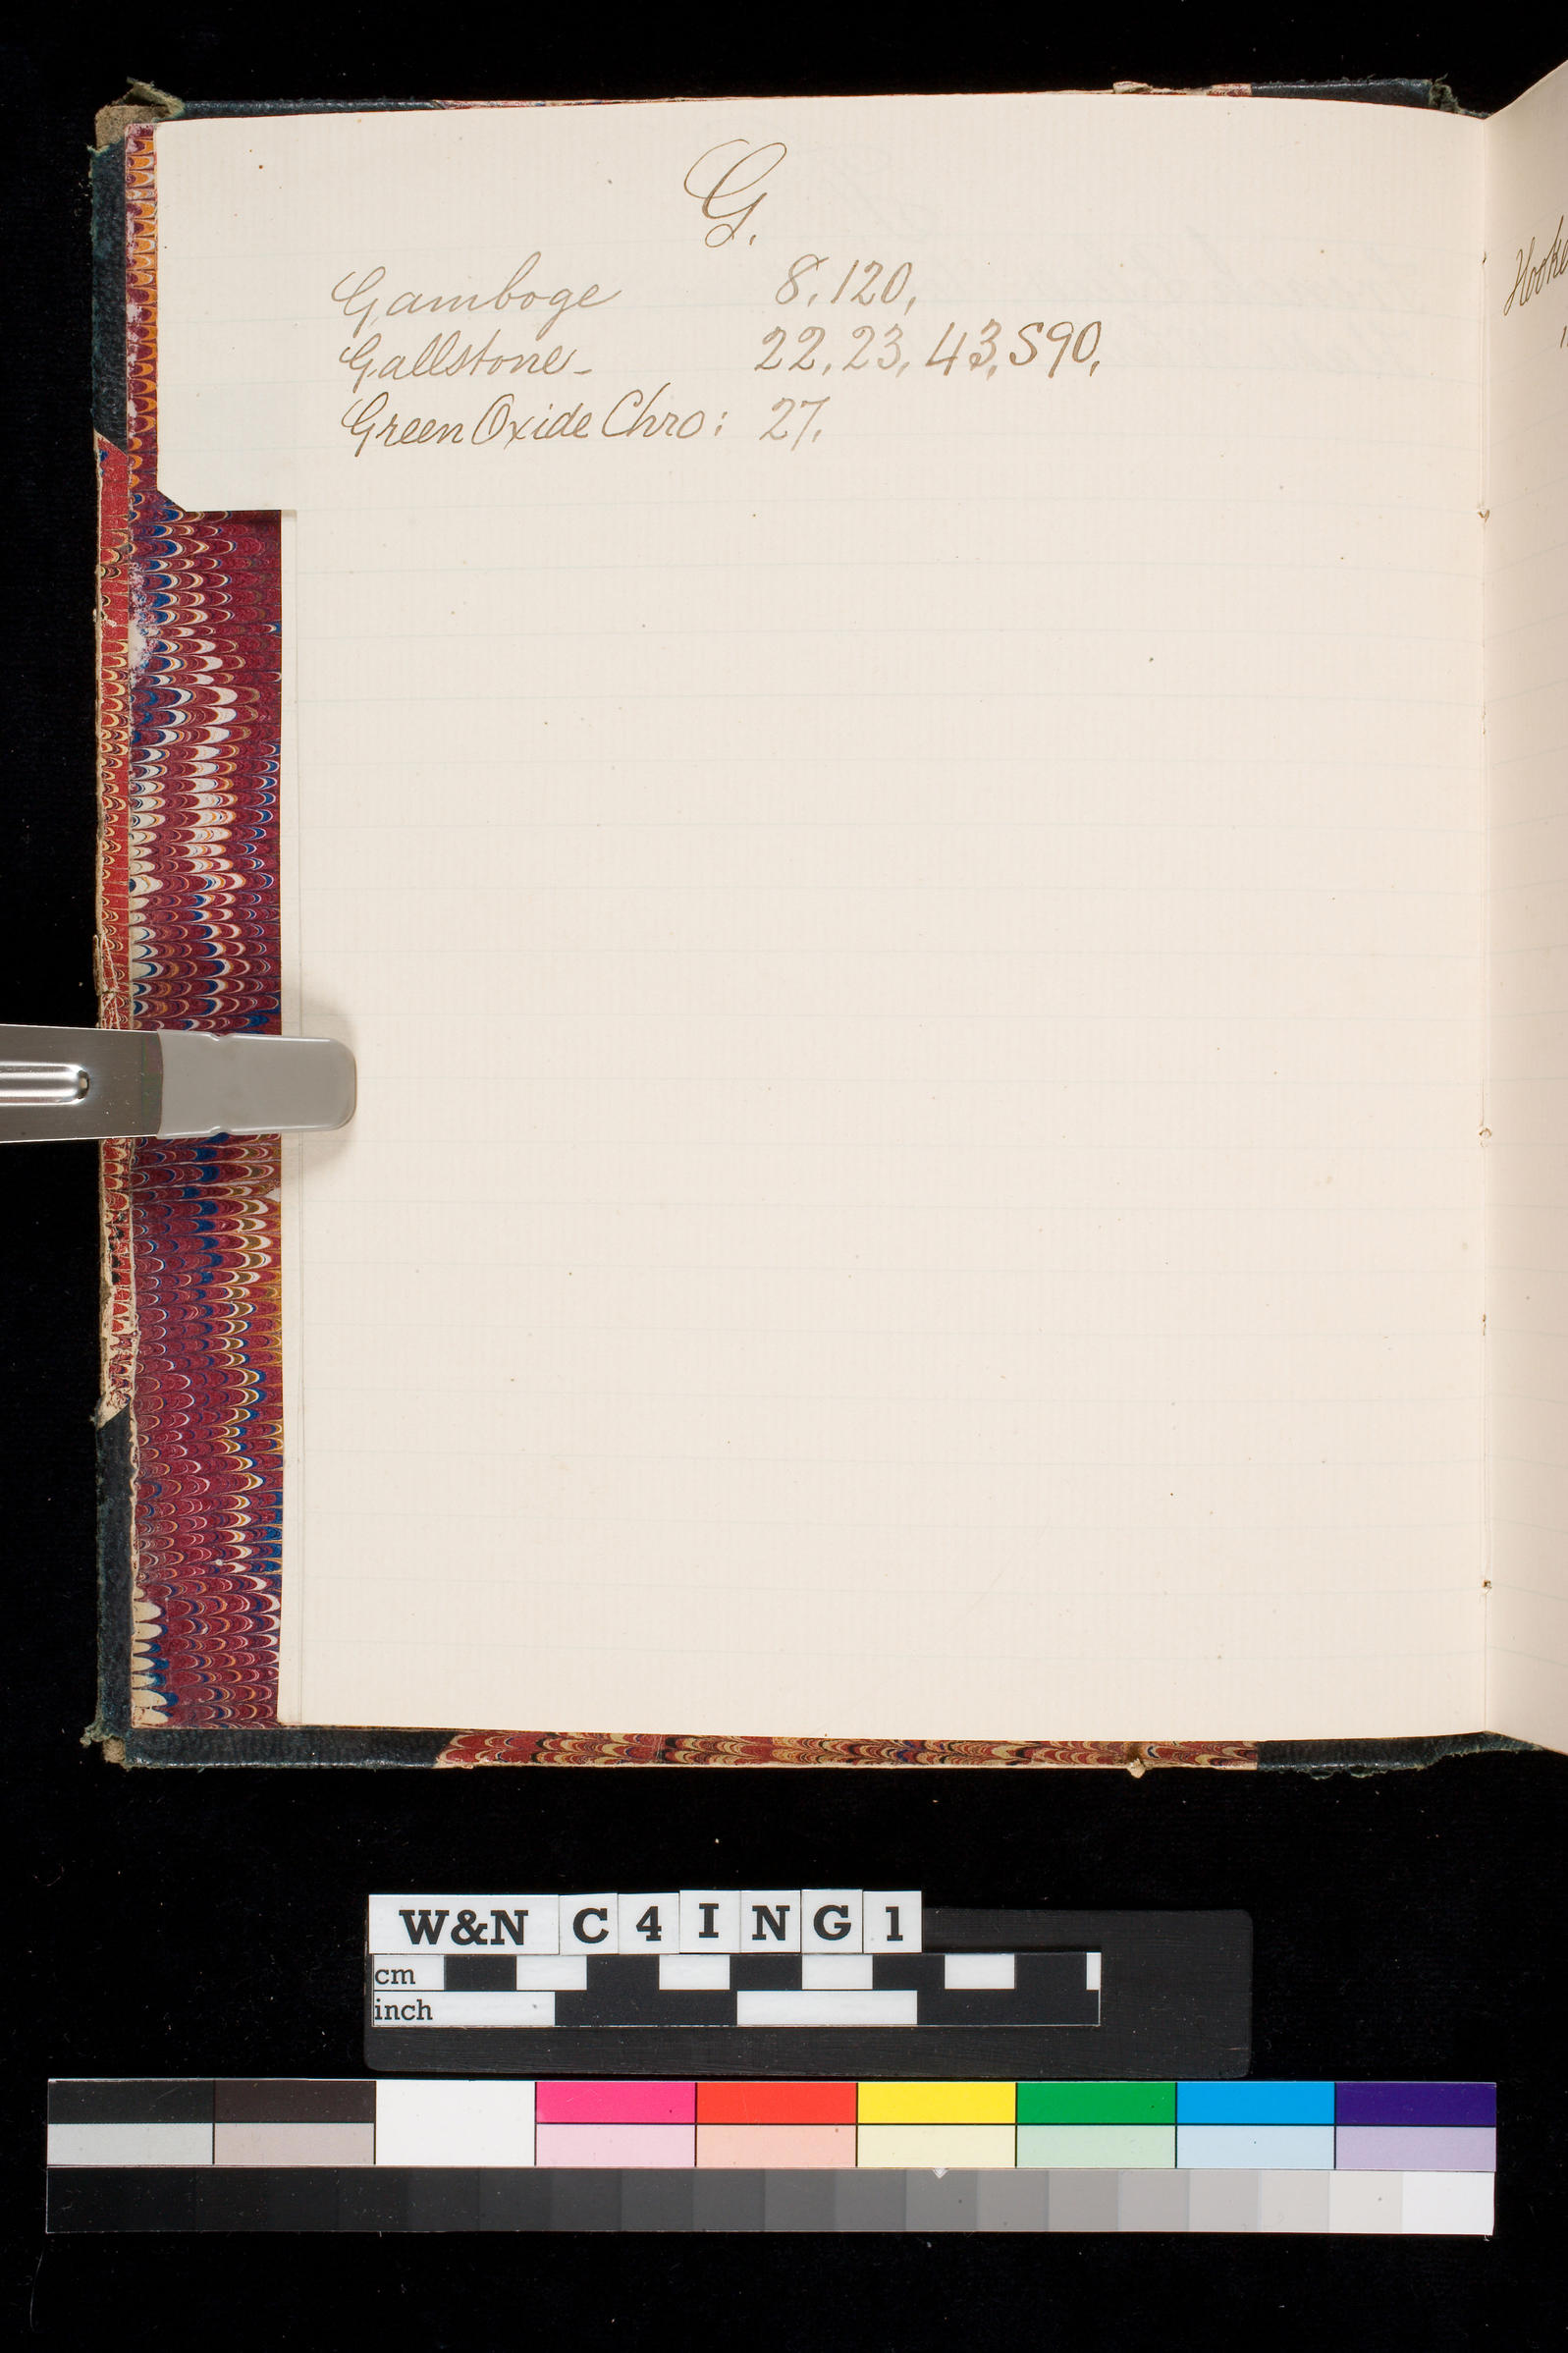 G.
Gamboge 8, 120,
Gallstone- 22, 23, 43, S90,
Green Oxide Chro: 27,
W&N C 4 I N G 1
cm
inch